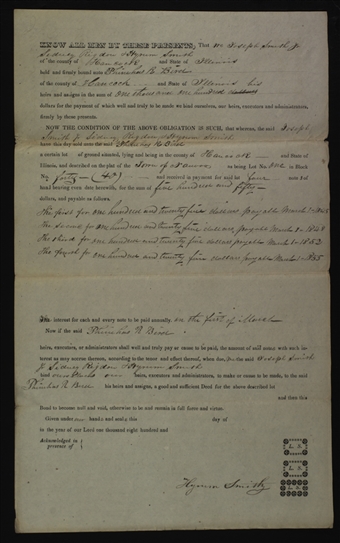 KNOW ALL MEN BY THESE PRESENTS; That we Joseph Smith Jr
Sidney Rigdon & Hyrum Smith
of the county of Hancock and State of Illinois
held and firmly bound unto Phinehas R Bird
of the county of Hancock and State of Illinois his
heirs and assigns in the sum of one thousand one hundred
dollars for the payment of which well and truly to be made we bind ourselves, our heirs, executors and administrators,
firmly by these presents.
NOW THE CONDITION OF THE ABOVE OBLIGATION IS SUCH, that whereas, the said Joseph
Smith Jr Sidney Rigdon & Hyrum Smith
have this day sold unto the said Phinehas R Bird
a certain lot of ground situated, lying and being in the county of Hancock and State of
Illinois, and described on the plat of the Town of Nauvoo as being Lot No. one in Block
No. forty and received in payment for said lot four note s of
hand bearing even date herewith, for the sum of five hundred and fifty
dollars, and payable as follows.
The first for one hundred and twenty five dollars payable March
The second for one hundred and twenty five dollars payable March
The third for one hundred and twenty five dollars payable March
The fourth for one hundred and twenty five dollars payable March
The interest for each and every note to be paid annually, on the first of March
Now if the said Phinehas R Bird
heirs, executors, or administrators shall well and truly pay or cause to be paid, the amount of said notes with such in-
terest as may accrue thereon, according to the tenor and effect thereof, when due, the said Joseph Smith
Jr Sidney Rigdon & Hyrum Smith
bind our heirs, executors and administrators, to make or cause to be made, to the said
Phinehas R Bird his heirs and assigns, a good and sufficient Deed for the above described lot
and then this
Bond to become null and void, otherwise to be and remain in full force and virtue.
Given under our hands and seals this day of
in the year of our Lord one thousand eight hundred and
Acknowledged in
presence of
L. S.
L. S.
Hyrum Smith
L. S.